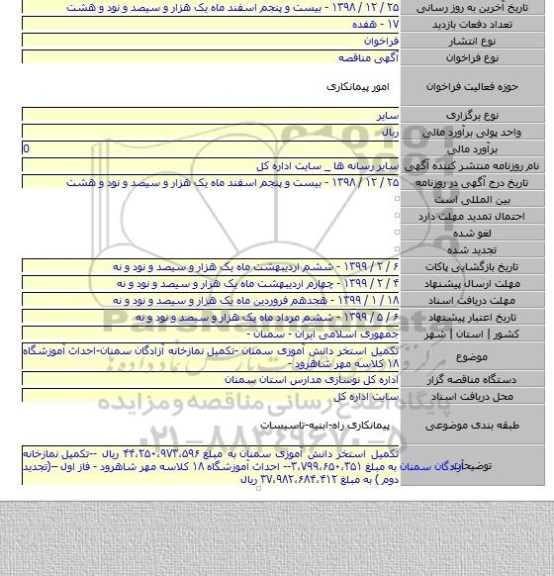 تاریخ آخرین به روز رسانی ۲۵ / ۱۲ / ۱۳۹۸ - بیست و پنجم اسفند ماه یک هزار و سیصد و نود و هشت
تعداد دفعات بازدید ۱۷ - هفده
نوع انتشار فراخوان
نوع فراخوان آگهی مناقصه
حوزه فعالیت فراخوان امور پیمانکاری
نوع برگزاری سایر
واحد پولی برآورد مالی ریال
برآورد مالی 0
نام روزنامه منتشر کننده آگهی سایر رسانه ها _ سایت اداره کل
تاریخ درج آگهی در روزنامه ۲۵ / ۱۲ / ۱۳۹۸ - بیست و پنجم اسفند ماه یک هزار و سیصد و نود و هشت
بین المللی است
احتمال تمدید مهلت دارد
لغو شده
تجدید شده
تاریخ بازگشایی پاکات ۶ / ۲ / ۱۳۹۹ - ششم اردیبهشت ماه یک هزار و سیصد و نود و نه
مهلت ارسال پیشنهاد ۴ / ۲ / ۱۳۹۹ - چهارم اردیبهشت ماه یک هزار و سیصد و نود و نه
مهلت دریافت اسناد ۱۸ / ۱ / ۱۳۹۹ - هجدهم فروردین ماه یک هزار و سیصد و نود و نه
تاریخ اعتبار پیشنهاد ۶ / ۵ / ۱۳۹۹ - ششم مرداد ماه یک هزار و سیصد و نود و نه
کشور | استان | شهر جمهوری اسلامی ایران - سمنان -
موضوع تکمیل استخر دانش آموزی سمنان -تکمیل نمازخانه آزادگان سمنان-احداث آموزشگاه
۱۸ کلاسه مهر شاهرود -
دستگاه مناقصه گزار اداره کل نوسازی مدارس استان سمنان
محل دریافت اسناد سایت اداره کل
پایگاه اطلاع رسانی مناقصه و مزایده
طبقه بندی موضوعی پیمانکاری راه-ابنیه-تاسیسات
۰۲۱-۸۸۳۴۹۶۷۰-۵
تکمیل استخر دانش آموزی سمنان به مبلغ ۴۴،۲۵۰،۹۷۳،۵۹۶ ریال --تکمیل نمازخانه
توضیحات آزادگان سمنان به مبلغ ۳،۷۹۹،۶۵۰،۳۵۱-- احداث آموزشگاه ۱۸ کلاسه مهر شاهرود - فاز اول –(تجدید
دوم ) به مبلغ ۳۷،۹۸۲،۶۸۴،۴۱۲ ریال